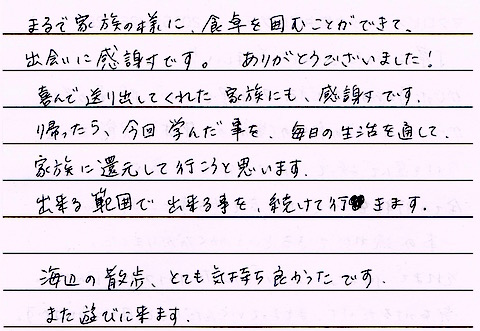 まるで家族の様に、食卓を囲むことができて、
出会いに感謝です。 ありがとうございました!
喜んで送り出してくれた家族にも、感謝です。
帰ったら、今回学んだ事を、毎日の生活を通して、
家族に還元して行こうと思います。
出来る範囲で出来る事を、続けて行きます。
海辺の散歩、とても気持ち良かったです。
また遊びに来ます。